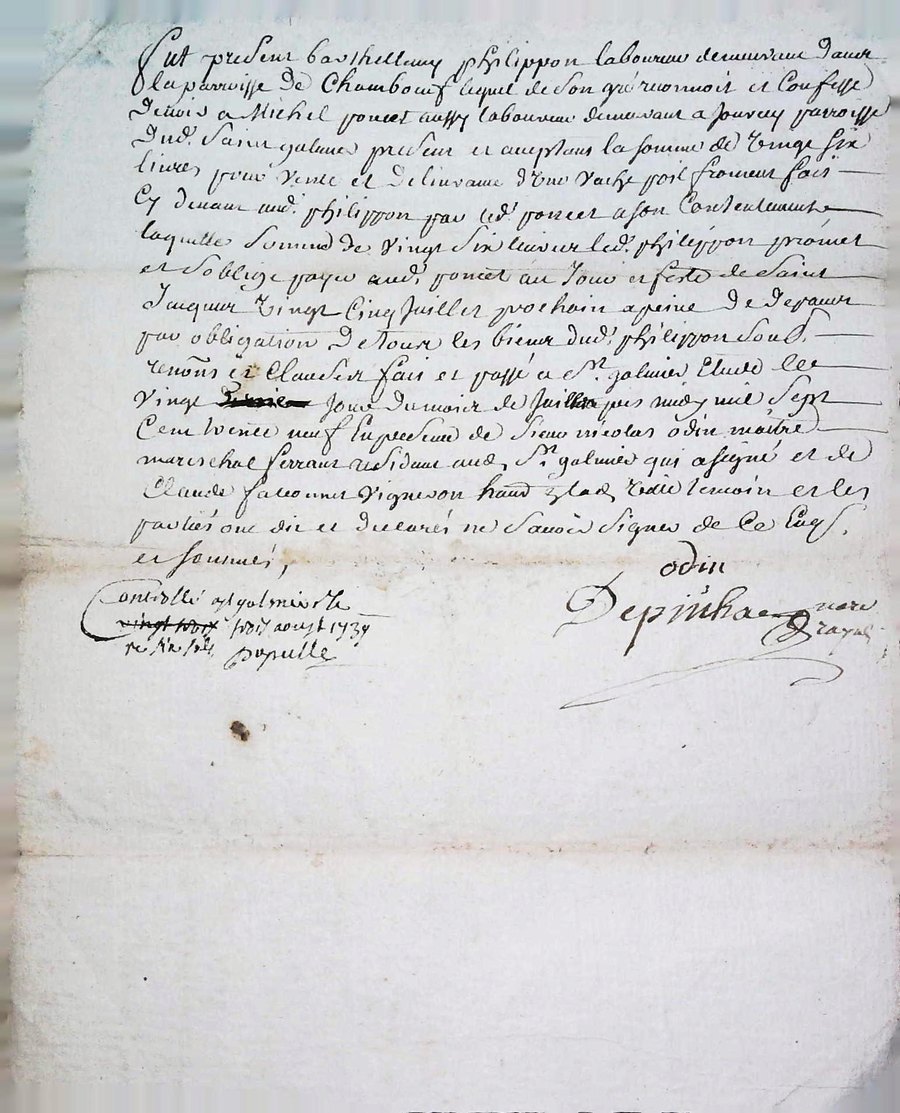 Fut present barthellemy philippon laboureur demeurant dans
la parroisse de Chambœuf lequel de son gré reconnoit et Confesse
devoir a Michel poncet aussy laboureur demeurant a Jourcey parroisse
dud. Saint galmier present et aceptant la somme de vingt six
livres pour vente et delivrance d'une vache poil froment fait
Cy devant aud. philippon par led. poncet a son Contentement
laquelle somme de vingt six livres led. philippon promet
et s'oblige payer aud. poncet au Jour et feste de Saint
Jacques vingt Cinq Juillet prochain a peine de depans
par obligation de tous les biens dud. philippon soub.
renons et Clauses fait et passé a St. galmier Etude
vingt Jour du mois de Juillet apres midy mil Sept
Cent trente neuf En presence de sieur nicolas odin maitre
mareschal ferrant residant aud. St. galmier qui a signé et de
Claude vigneron temoin et les
parties ont dit et declarés ne savoir signer de Ce Enqs.
et sommés,
odin
Controllé a St galmier le
trois aoust 1739